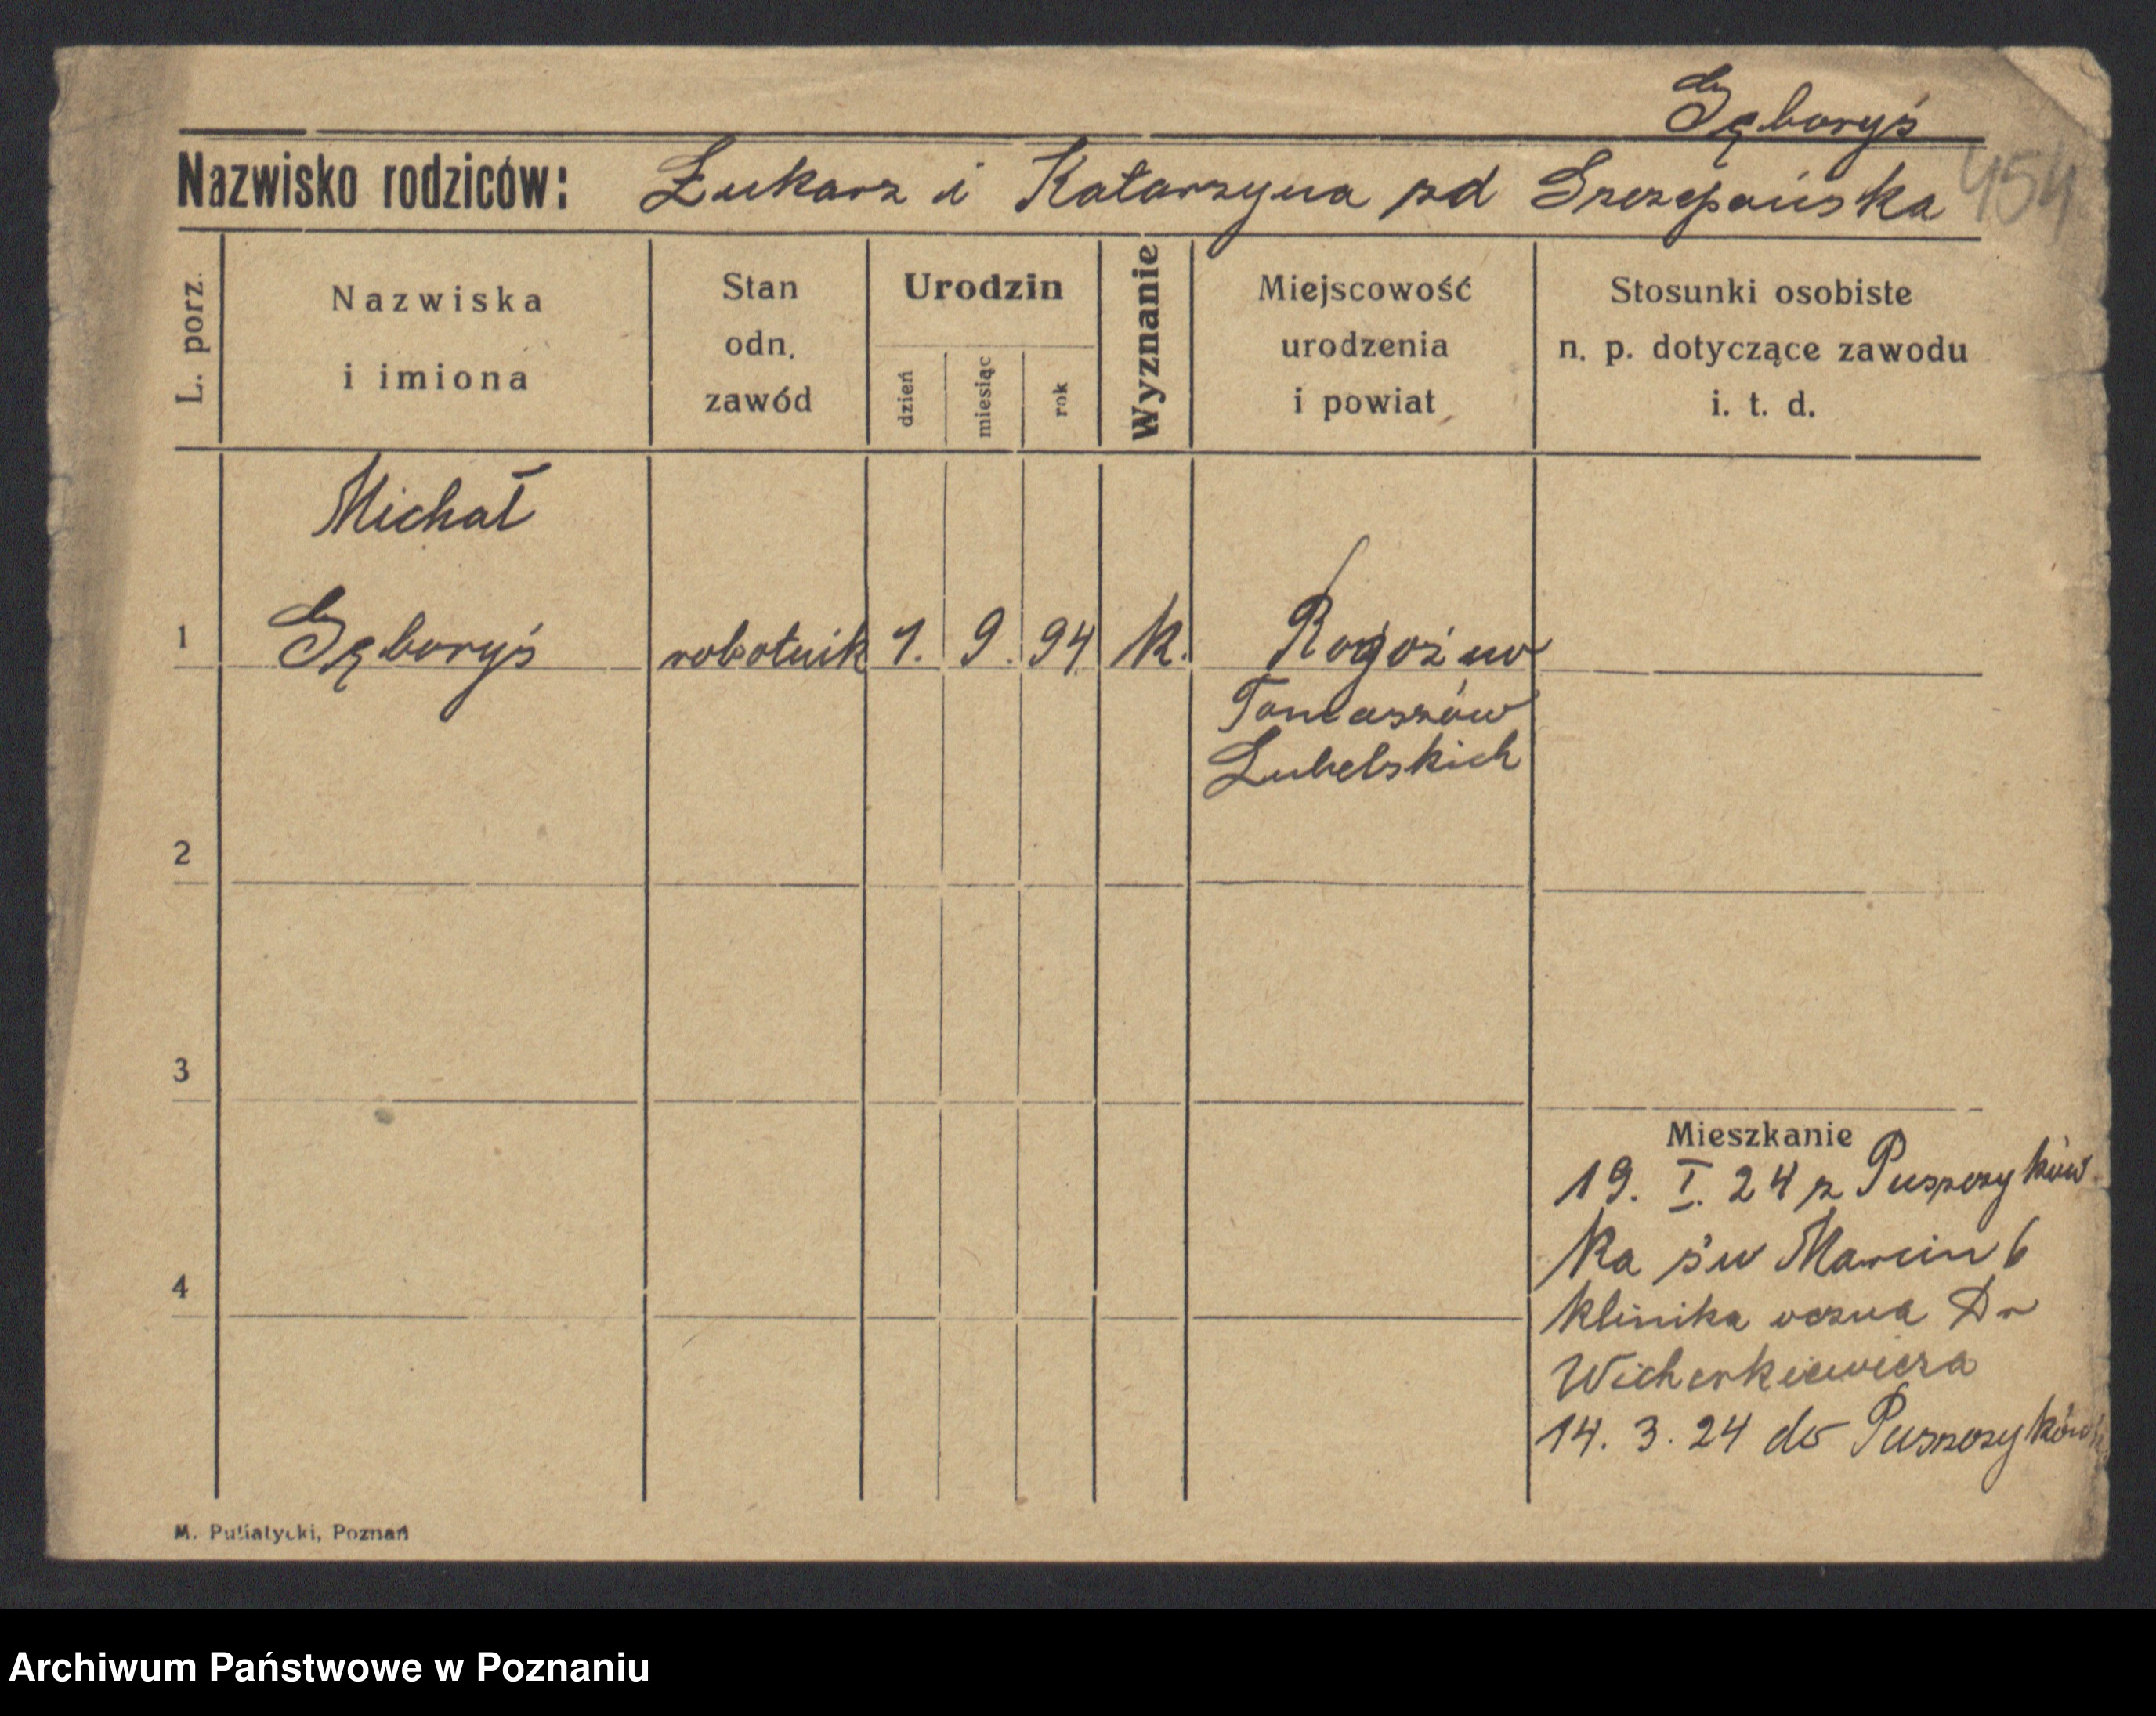 Gęboryś
Nazwisko rodziców: Łukarz i Katarzyna zd Szczepańska 454
L. porz.
Nazwiska
i imiona
Stan
odn.
zawód
Urodzin
dzień
miesiąc
rok
Wyznanie
Miejscowość
urodzenia
i powiat
Stosunki osobiste
n. p. dotyczące zawodu
i. t. d.
Michał
1 Gęboryś robotnik 1. 9. 94 k. Rogoźno
Tomaszów
Lubelskich
2
3
Mieszkanie
19. I. 24 z Puszczyków
ka św Marcin 6
4
klinika oczna Dr
Wicherkiewicza
14. 3. 24 do Puszczyków
M. Putiatycki, Poznań
Archiwum Państwowe w Poznaniu